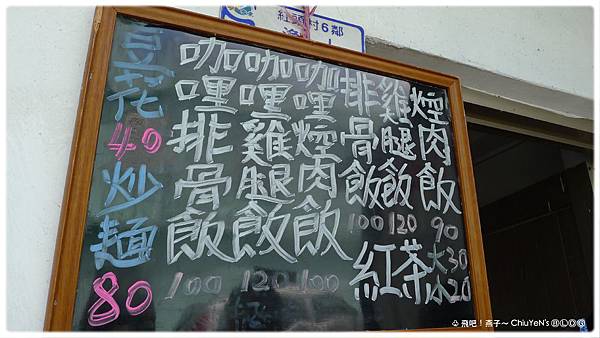 紅頭村6鄰
豆花
40
炒麵
80
咖哩排骨飯
100
咖哩雞腿飯
120
咖哩焢肉飯
100
排骨飯
100
雞腿飯
120
焢肉飯
90
紅茶大30
小20
飛吧！燕子～ ChiuYeN's BLOG